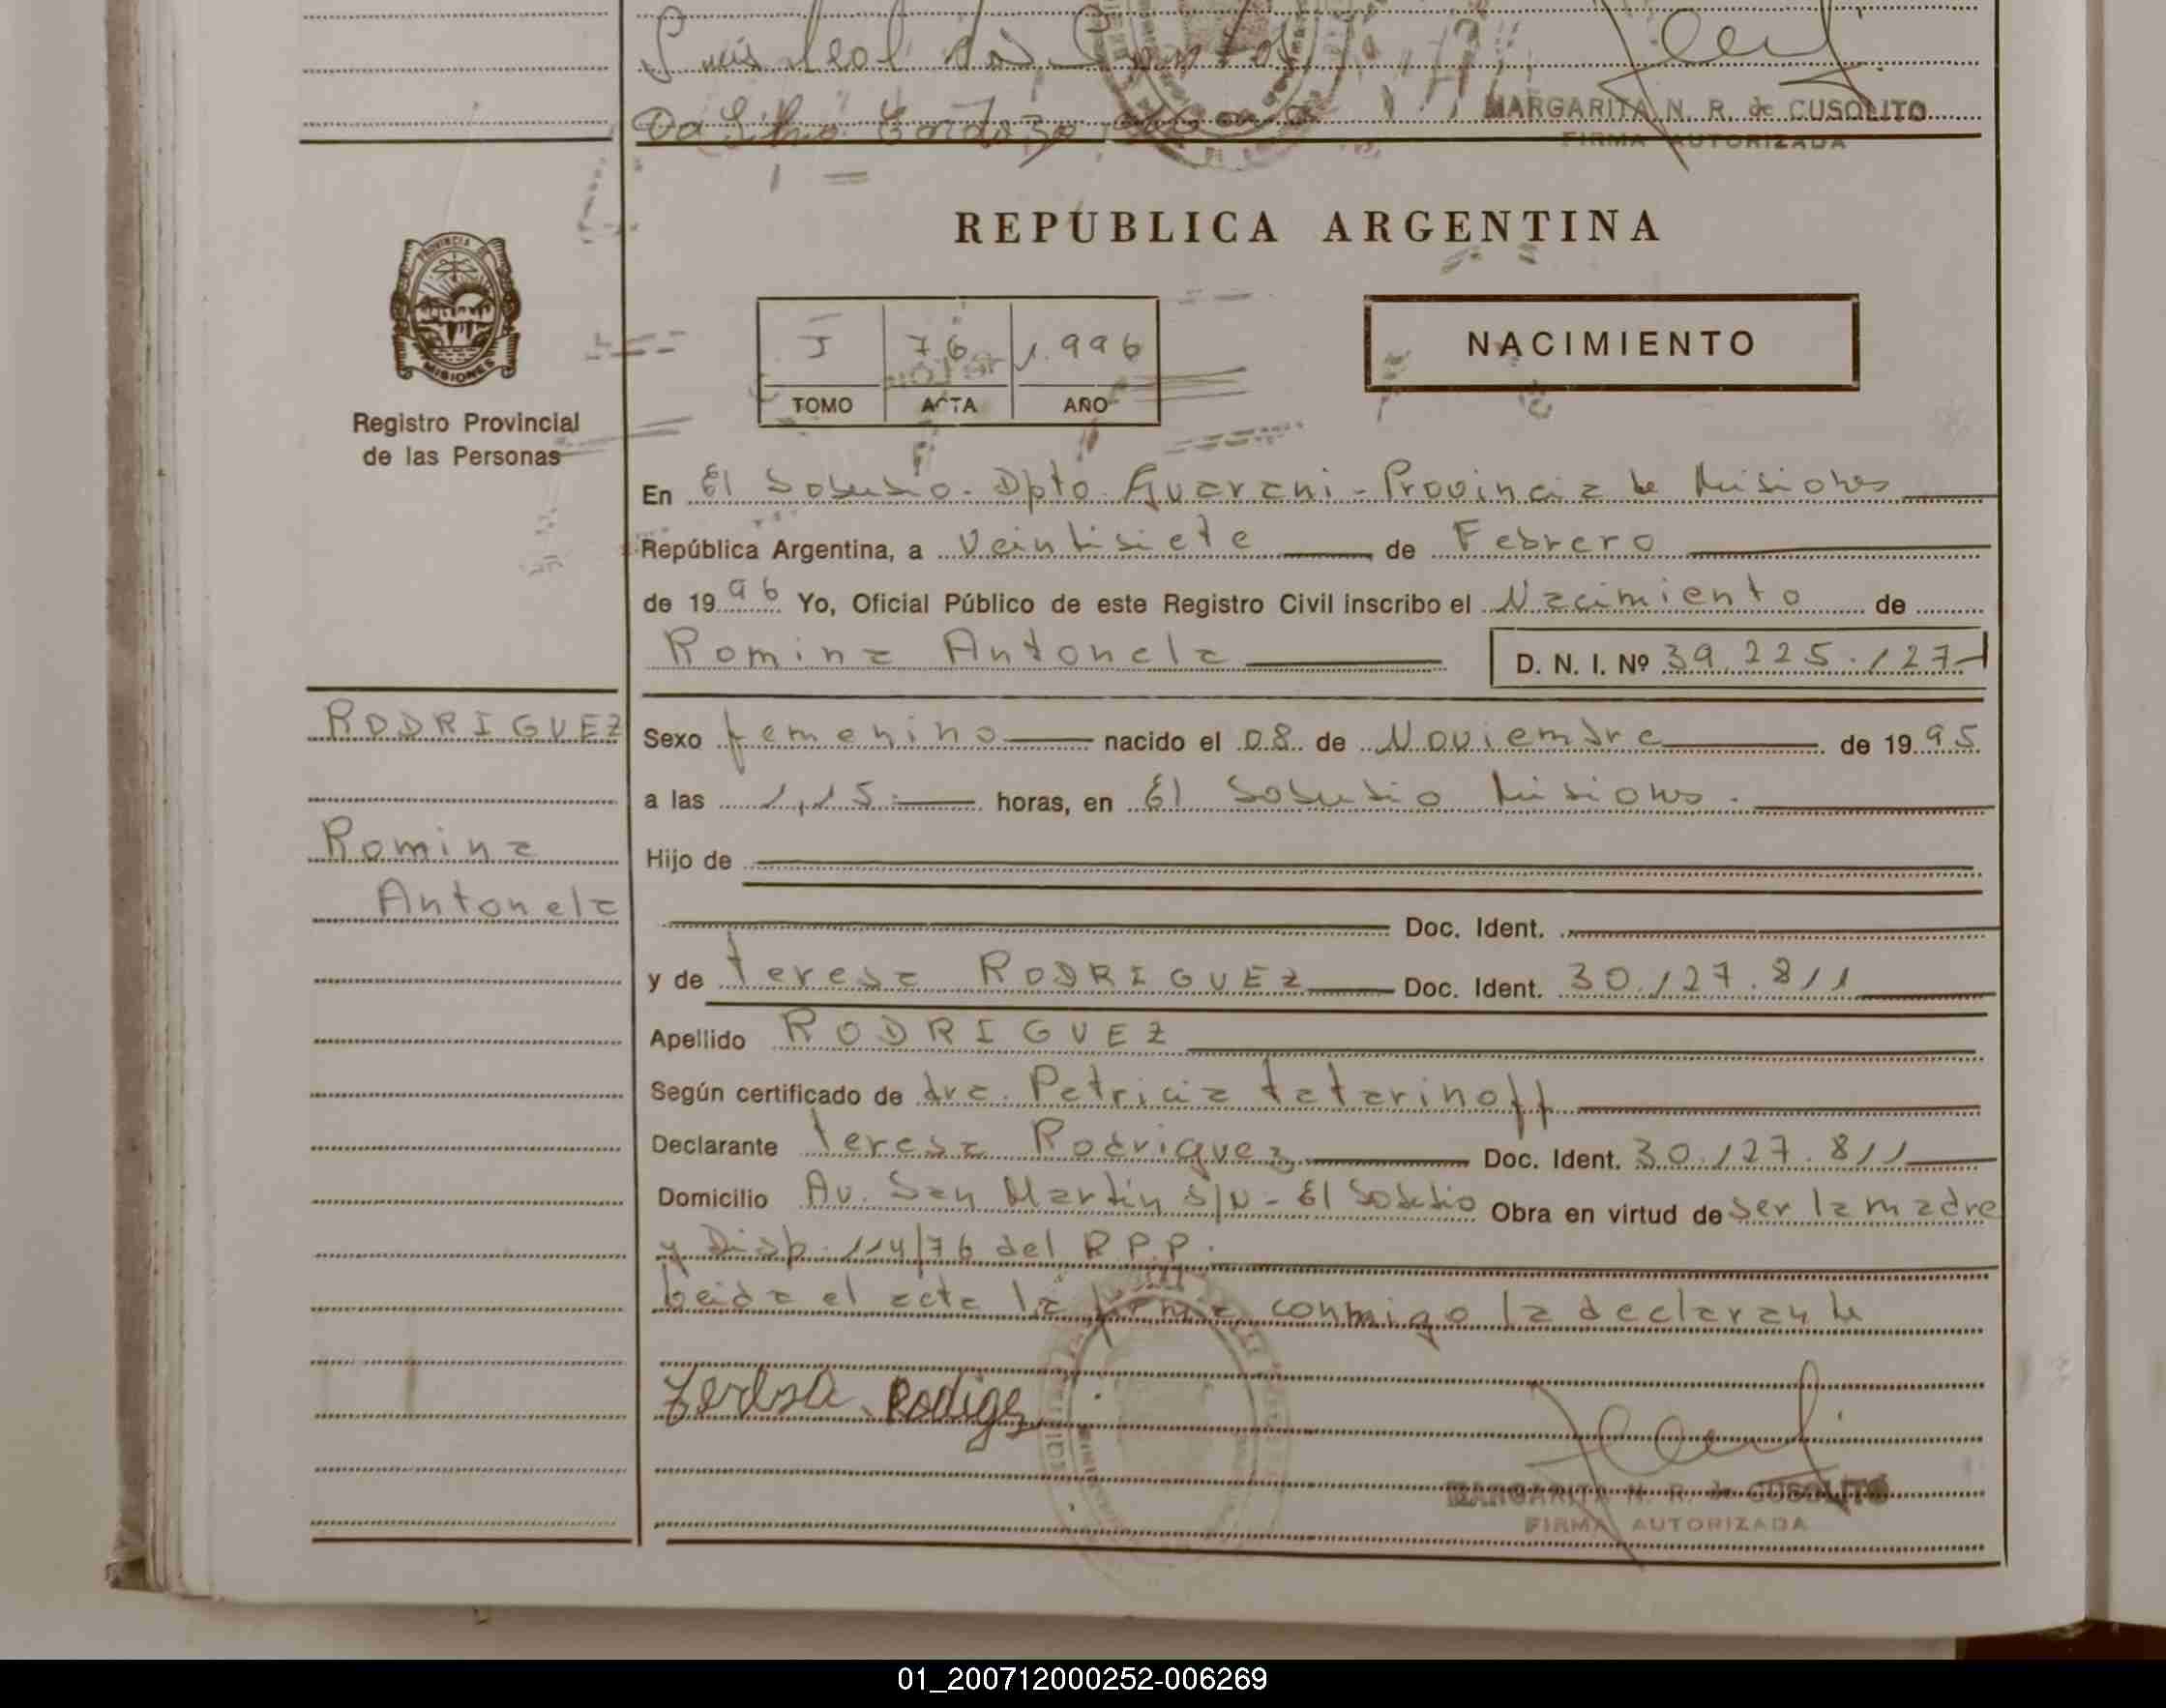 MARGARITA N. R. de CUSOLITO
FIRMA AUTORIZADA
PROVINCIA DE
MISIONES
Registro Provincial
de las Personas
REPUBLICA ARGENTINA
I 76 1.996
TOMO ACTA AÑO
NACIMIENTO
En El Soberbio - Dpto Guarani - Provincia de Misiones
República Argentina, a Veintisiete de Febrero
de 19 96 Yo, Oficial Público de este Registro Civil inscribo el Nacimiento de
Romina Antonela D. N. I. Nº 39.225.127
RODRIGUEZ
Romina
Antonela
Sexo femenino nacido el 08 de Noviembre de 19 95
a las 1,15 horas, en El Soberbio Misiones.
Hijo de
Doc. Ident.
y de Teresa RODRIGUEZ Doc. Ident. 30.127.811
Apellido RODRIGUEZ
Según certificado de dra. Patricia Tatarinoff
Declarante Teresa Rodriguez Doc. Ident. 30.127.811
Domicilio Av. San Martín S/N - El Soberbio Obra en virtud de ser la madre
y Disp. 114/76 del R.P.P.
Leida el acta la firma conmigo la declarante
Teresa Rodigez
MARGARITA N. R. de CUSOLITO
FIRMA AUTORIZADA
01_200712000252-006269